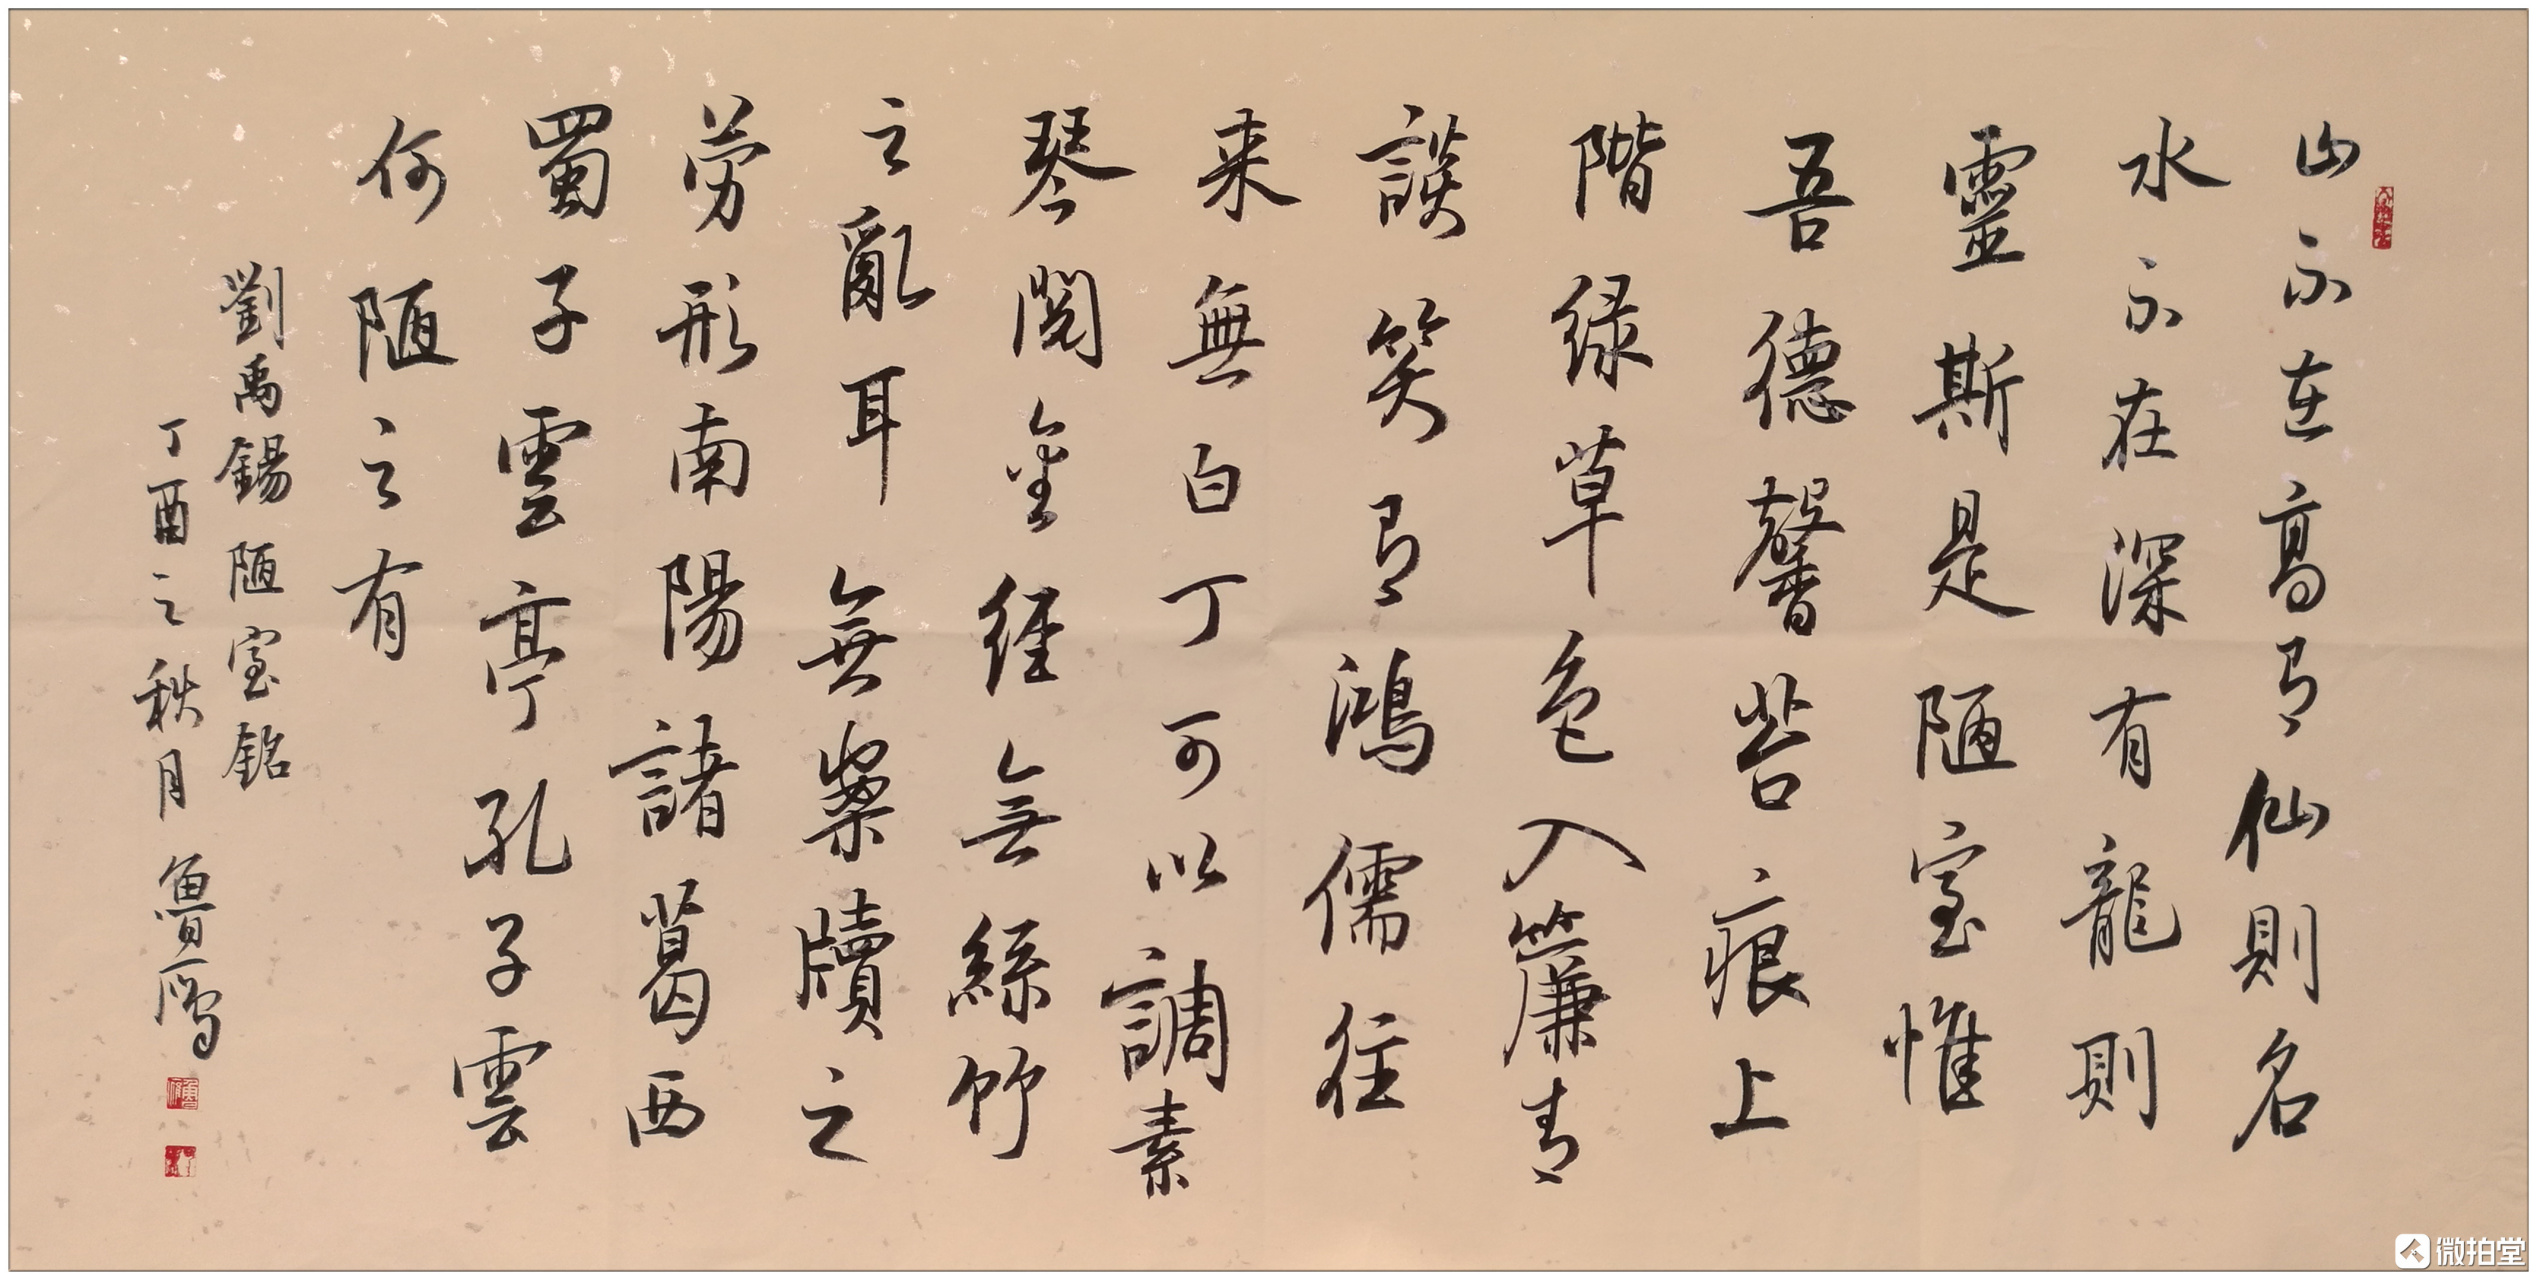 山不在高有仙則名
水不在深有龍則
靈斯是陋室惟
吾德馨苔痕上
階緑草色入簾青
談笑有鴻儒往
来無白丁可以調素
琴閱金經無絲竹
之亂耳無案牘之
勞形南陽諸葛西
蜀子雲亭孔子雲
何陋之有
劉禹錫陋室銘
丁酉之秋月魯
微拍堂